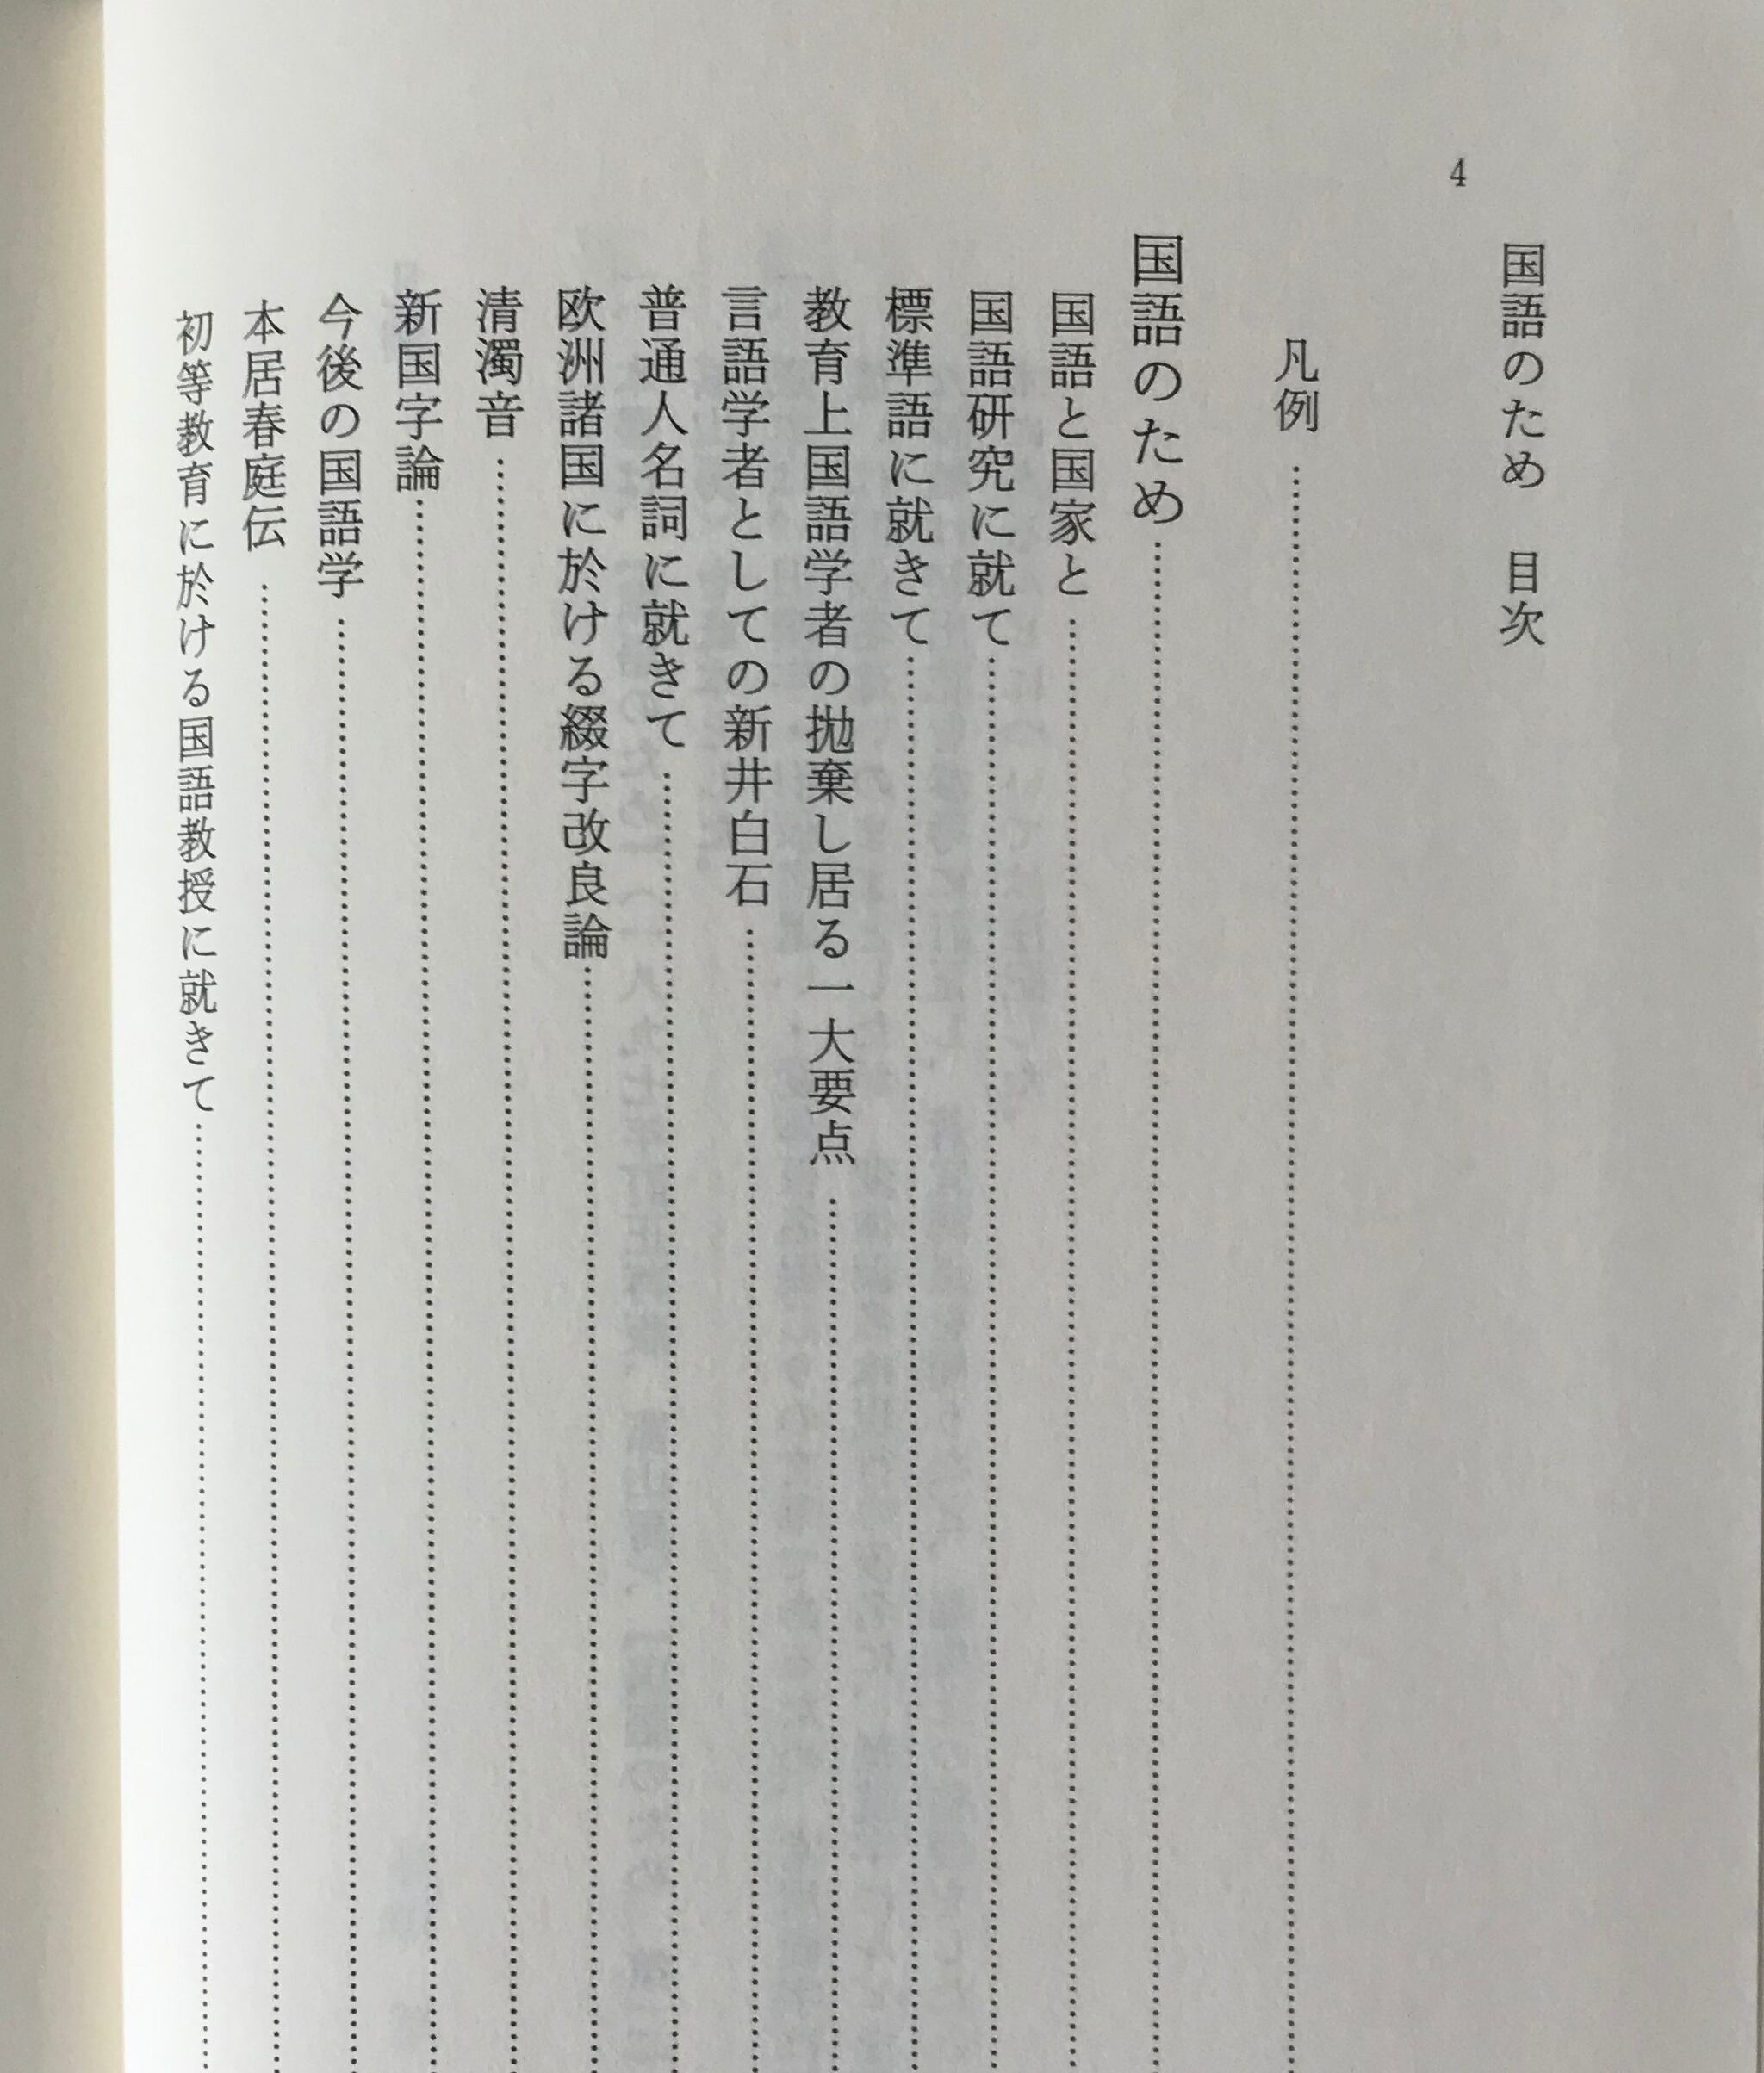 4
国語のため　目次
凡例……
国語のため……
国語と国家と……
国語研究に就て……
標準語に就きて……
教育上国語学者の抛棄し居る一大要点……
言語学者としての新井白石……
普通人名詞に就きて……
欧洲諸国に於ける綴字改良論……
清濁音……
新国字論……
今後の国語学……
本居春庭伝……
初等教育に於ける国語教授に就きて……